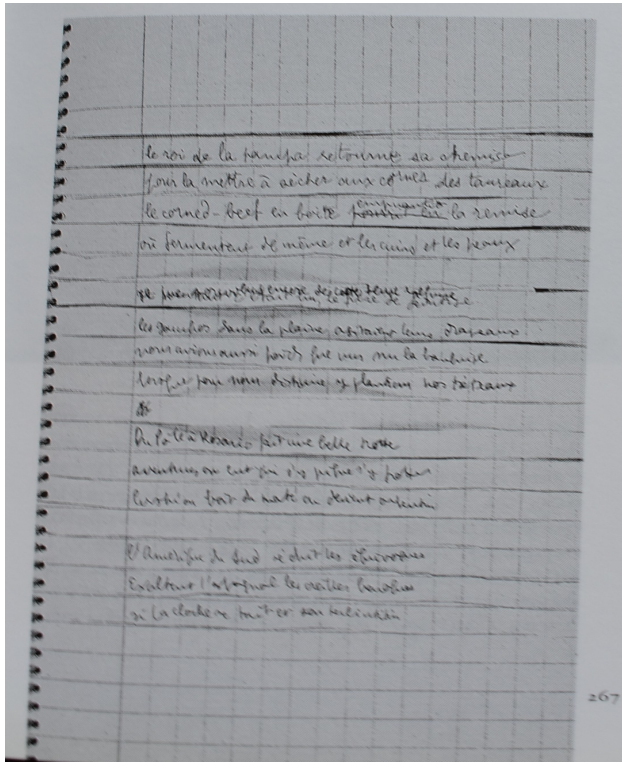 le roi de la pampa retourne sa chemise
pour la mettre à sécher aux cornes des taureaux
le corned-beef en boîte la remise
où fermentent de même et les cuirs et les peaux
de cette heure
les gauchos dans la plaine agitaient leurs drapeaux
nous avions aussi froid que nus sur la banquise
lorsque pour nous distraire y plantions nos tréteaux
Du Pôle à Rosario fait une belle trotte
aventures on eut qui s'y pique s'y frotte
lorsqu'on boit du maté on devient argentin
L'Amérique du Sud séduit les équivoques
Exaltent l'espagnol les oreilles baroques
si la cloche se tait et son
267